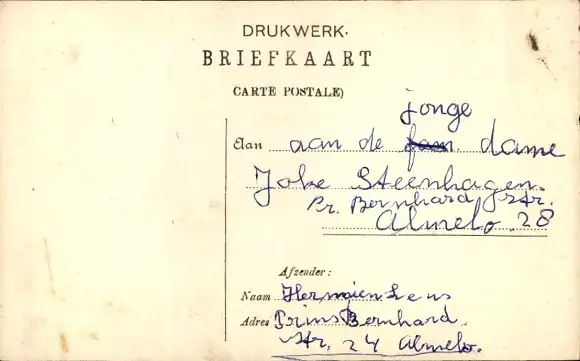 DRUKWERK.
BRIEFKAART
CARTE POSTALE)
jonge
Aan aan de dame
Joke Steenhagen.
Pr. Bernhard Str.
Almelo. 28
Afzender:
Naam Hermien Lens
Adres Prins Bernhard.
Str. 24 Almelo.